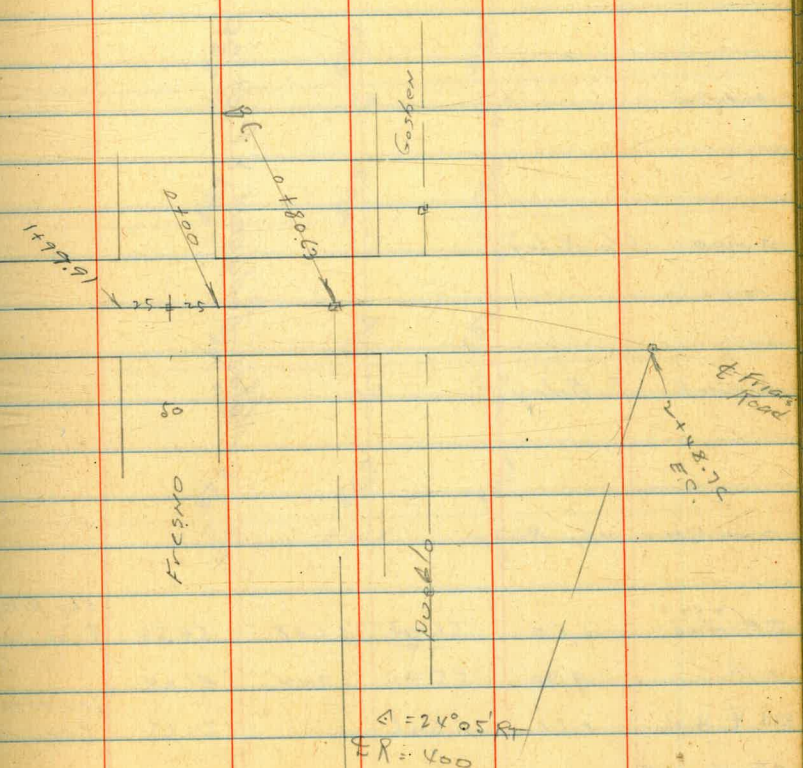 Goshen
B.C.
0+80.63
0+00
1+99.91
25 25
50
Fresno
Pueblo
℄ Friars
Road
2+48.76
E.C.
Δ = 24°05' RT
℄ R = 400